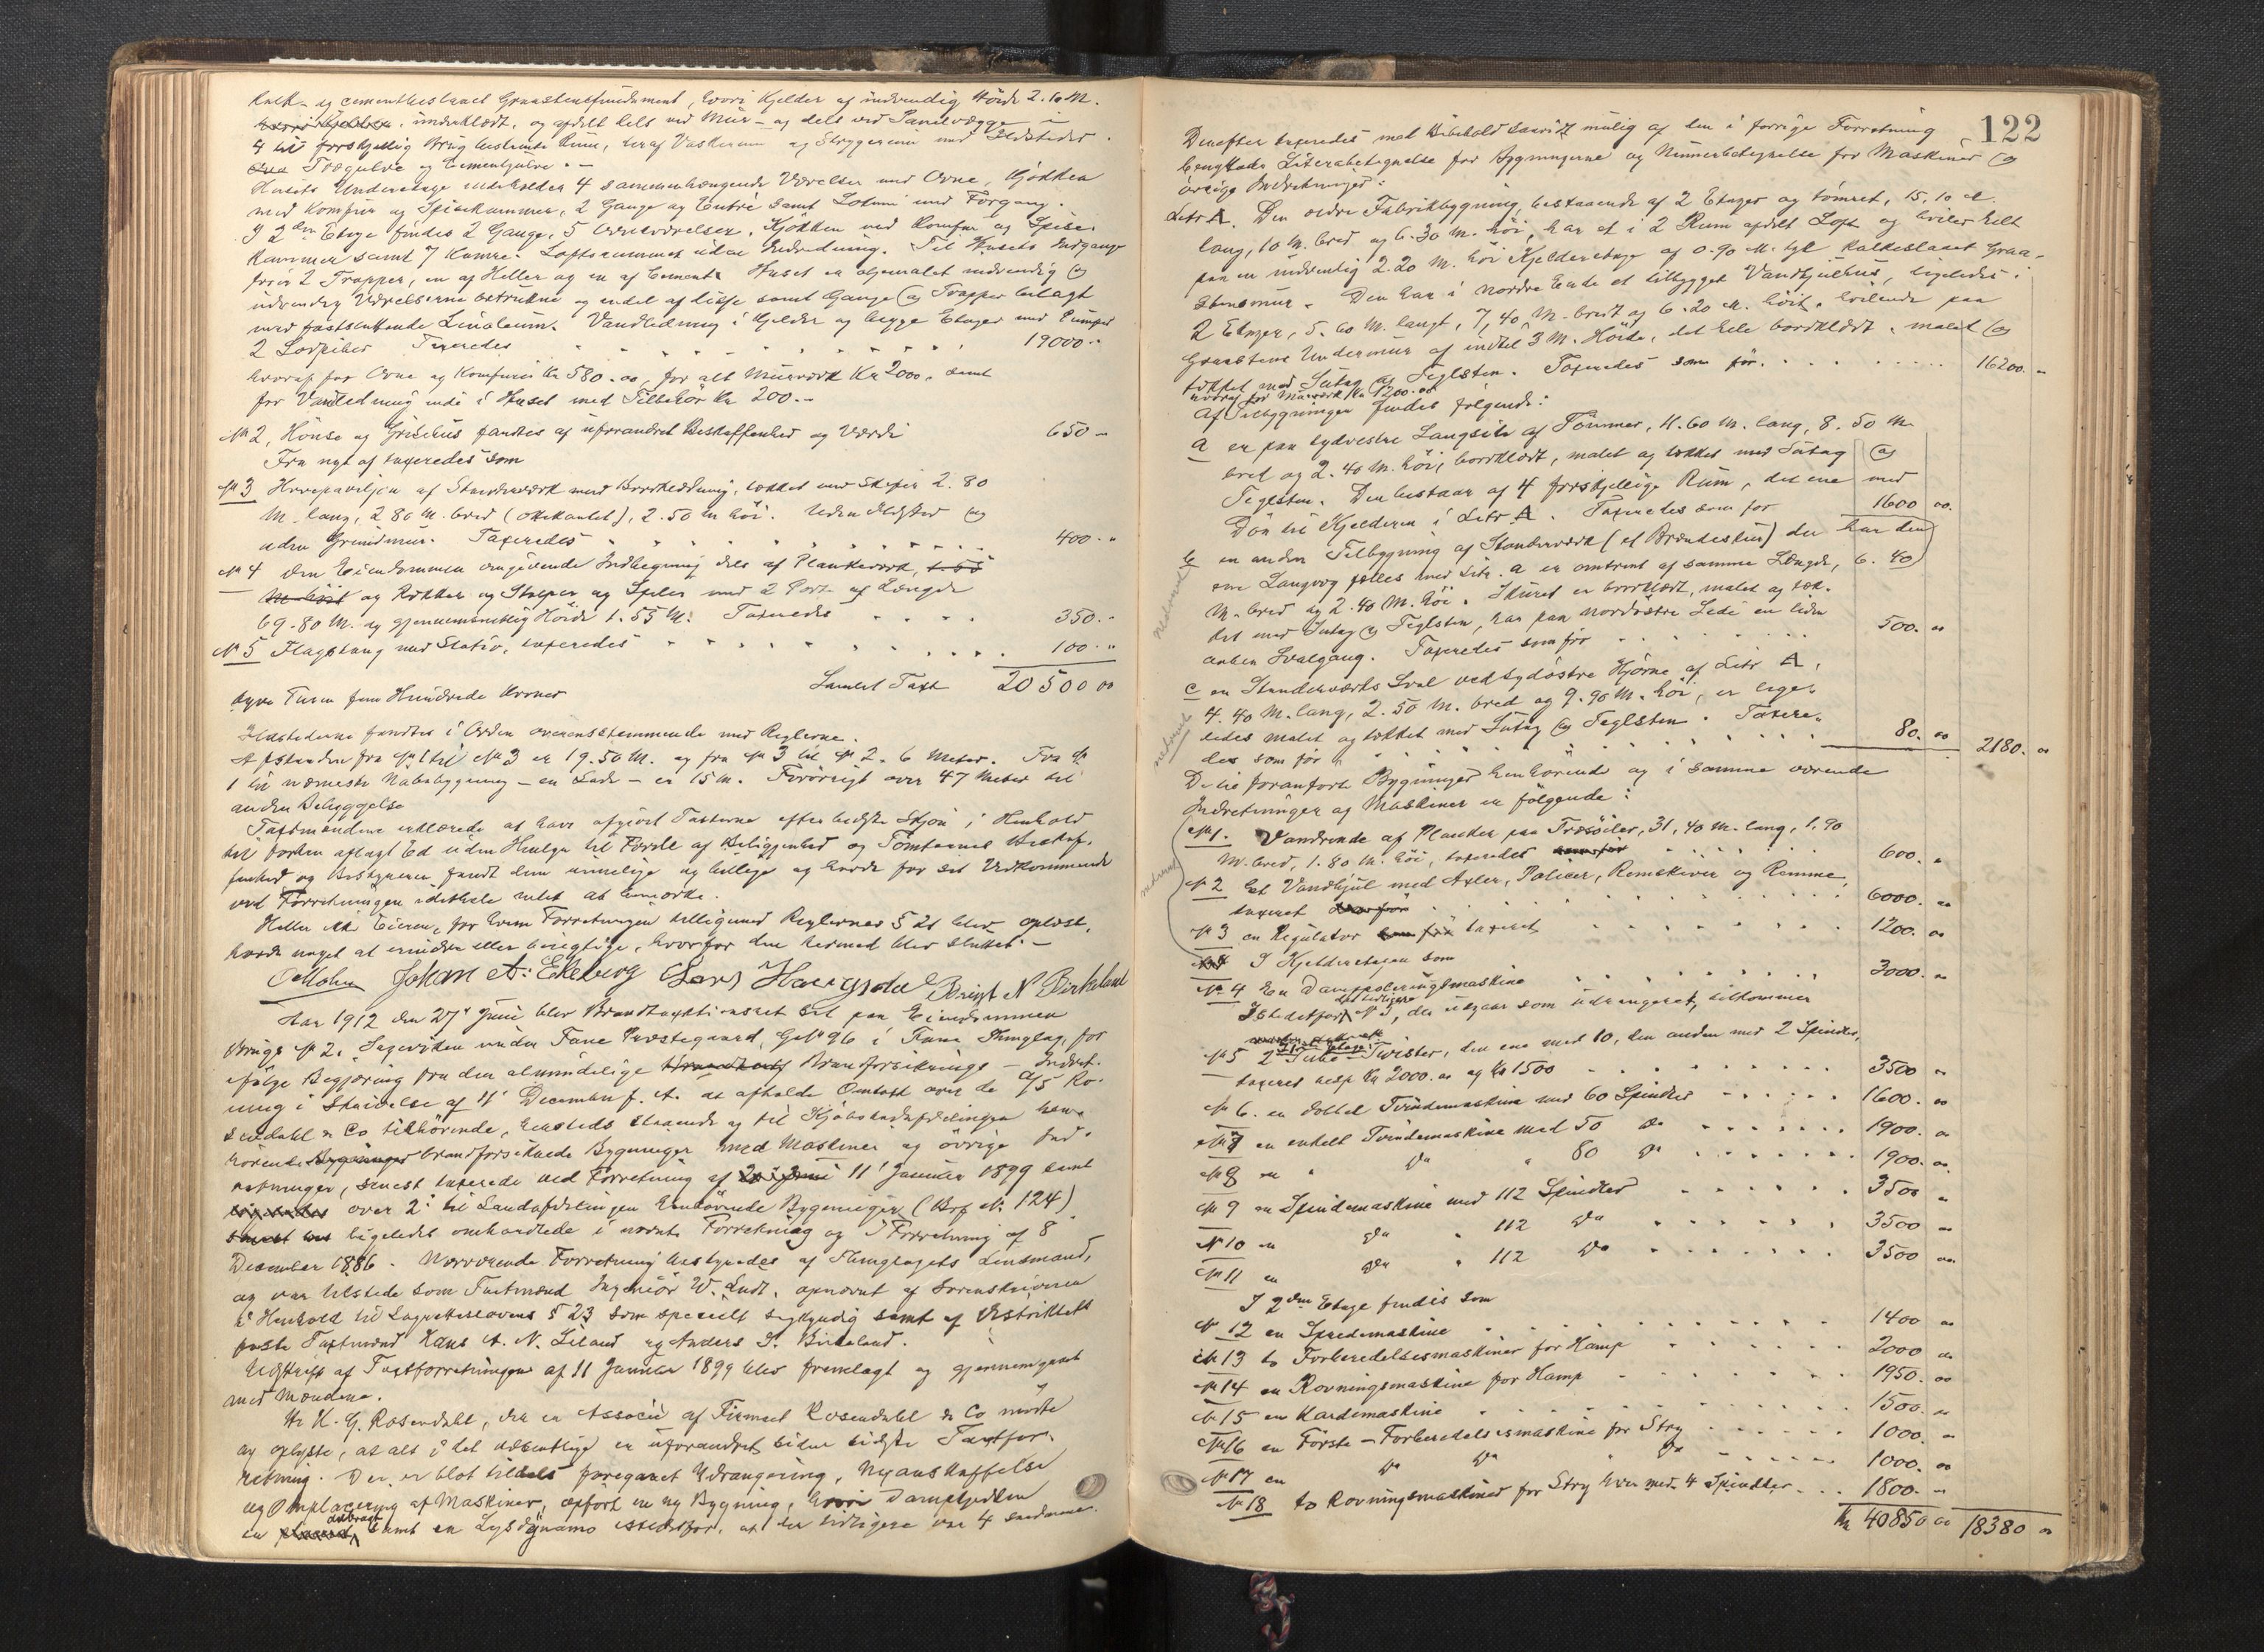 Kalk- og cementbeslaaet Graastensfundament, hvori Kjelder af indvendig Höide 2.10 M.
hvori Kjelder, inderklædt, og afdelt dels ved Mur- og dels ved Panelvægge i
4 til forskjellig Brug bestemte Rum, heraf Vaskerum og Strygerum med Ildsteder.
Trægulve og Cementgulve. -
Husets Underetage indeholder 4 sammenhængende Værelser med Ovne, Kjökken
med Komfur og Spisekammer, 2 Gange og Entré samt Lokum med Forgang.
I 2den Etage findes 2 Gange, 5 Værelser, Kjökken med Komfur og Spise-
kammer samt 7 Kamre. Loftsrummet uden Indredning. Til Husets Indgange
förer 2 Trapper, en af Heller og en af Cement. Huset er oljemalet indvendig og
udvendig Værelserne betrukne og endel af disse samt Gange og Trapper belagt
med fastsittende Linoleum. Vandledning i Kjelder og begge Etager med Pumper
2 Lodpiber Taxeredes 19000.-
hvoraf for Ovne og Komfurer Kr 580.00, for alt Murværk Kr 2000.- samt
for Vandledning inde i Huset med Tilbehör Kr 200.-
No 2, Hönse og Grisehus fandtes af uforandret Beskaffenhed og Værdi 650 -
Fra nyt af taxeredes som
No 3 Havepaviljon af Standerværk med Bordklædning, tækket med Skifer 2.80
M. lang, 2.80 M. bred (ottekantet), 2.50 M. höi. Uden Ildsted og
uden Grundmur. Taxeredes 400.-
No 4 den Eiendommen omgivende Indhegning dels af Plankeværk, 1.55
M. höit og Rækker og Stolper og Speler med 2 Porte af Længde
69.80 M. og gjennemsnitlig Höide 1.55 M. Taxeredes 350.-
No 5 Flagstang med Stativ, taxeredes 100.-
Samlet Taxt 20500 00
tyve Tusen fem Hundrede Kroner
Ildstederne fandtes i Orden overensstemmende med Reglerne.
Afstanden fra No 1 til No 3 er 19.50 M. og fra No 3 til No 2 - 6 Meter. Fra No
1 til nærmeste Nabobygning - en Lade - er 15 M. Forövrigt over 47 Meter til
anden Bebyggelse
Taxtmændene erklærede at have afgivet Taxterne efter bedste Skjön i Henhold
til forhen aflagt Ed uden Hensyn til Fordele af Beliggenhed og Tomternes Beskaf-
fenhed og Bestyreren fandt dem rimelige og billige og havde for sit Vedkommende
ved Forretningen idethele intet at bemærke.
Heller ikke Eieren, for hvem Forretningen tilligemed Reglernes § 21 blev oplæst,
havde noget at erindre eller berigtige, hvorfor den hermed blev sluttet. -
O Mohn Johan A. Ekeberg Lars Haugsdal Brigt N Birkeland
Aar 1912 den 27de Juni blev Brandtaxtionsret sat paa Eiendommen
Brugs No 2, Sageviken under Fane Præstegaard, Gno 96 i Fane Thinglag, for
ifölge Begjæring fra den almindelige Brandforsikrings-Indret-
ning i Skrivelse af 11 December f. A. at afholde Omtaxt over de A/S Ro-
sendahl & Co tilhörende, hersteds staaende og til Kjöbstadafdelingen hen-
hörende Bygninger brandforsikrede Bygninger med Maskiner og övrige Ind-
retninger, senest taxerede ved Forretning af 11 Januar 1899 samt
over 2 til Landafdelingen henhörende Bygninger (Brf No. 124)
ligeledes omhandlede i nævnte Forretning og i Forretning af 8
December 1886. Nærværende Forretning bestyredes af Thinglagets Lensmand,
og var tilstede som Taxtmænd Ingeniör W. Lindt, opnævnt af Sorenskriveren
i Henhold til Lagretteslovens § 23 som specielt sagkyndig samt af Distriktets
faste Taxtmænd Hans A. N. Leland og Anders I. Birkeland.
Udskrift af Taxtforretningen af 11 Januar 1899 blev fremlagt og gjennemgaaet
med Mændene.
Hr H. G. Rosendahl, der er Associé af Firmaet Rosendahl & Co mødte
og oplyste, at alt i det væsentlige er uforandret siden sidste Taxtfor-
retning. Der er blot tildels foregaaet Udrangering, Nyanskaffelse
og Omplacering af Maskiner, opfört en ny Bygning, hvori Dampkjedelen
er anbragt samt en Lysdynamo istedetfor, at der tidligere var 4
122
Derefter taxeredes med Bibehold saavidt mulig af den i forrige Forretning
benyttede Literabetegnelse for Bygningerne og Nummerbetegnelse for Maskiner og
övrige Indretninger:
Litr A. Den ældre Fabrikbygning, bestaaende af 2 Etager og tömret, 15.10 M.
lang, 10 M. bred og 6.30 M. höi, har et i 2 Rum afdelt Loft og hviler helt
paa en indvendig 2.20 M. höi Kjelderetage af 0.90 M. tyk kalkeslaaet Graa-
stensmur. Den har i nordre Ende et tilbygget Vandhjulhus, ligeledes i
2 Etager, 5.60 M. langt, 7,40 M. bredt og 6.20 M. höit, hvilende paa
Graastens Undermur af indtil 3 M. Höide, det hele bordklædt, malet og
tækket med Sutag og Teglsten. Taxeredes som för 16200.-
hvoraf for Murværk Kr 1200.00
Af Tilbygninger findes fölgende:
a en paa sydvestre Langside af Tömmer, 11.60 M. lang, 8.50 M.
bred og 2.40 M. höi, bordklædt, malet og tækket med Sutag og
Teglsten. Den bestaar af 4 forskjellige Rum, det ene med
Dör til Kjelderen i Litr A. Taxeredes som för 1600 00.
b en anden Tilbygning af Standerværk (et Brændeskur) der har den
ene Langvæg fælles med Litr. a er omtrent af samme Længde, 6.40
M. bred og 2.40 M. höi. Skuret er bordklædt, malet og tæk-
ket med Sutag og Teglsten, har paa nordöstre Side en liden
aaben Svalgang. Taxeredes som för 500.00
c en Standerværks Sval ved sydöstre Hjörne af Litr A,
4.40 M. lang, 2.50 M. bred og 9.90 M. höi, er lige-
ledes malet og tækket med Sutag og Teglsten. Taxere-
des som för 80.00 2180.00
De til foranførte Bygninger henhörende og i samme værende
Indretninger og Maskiner er fölgende:
No 1. Vandrende af Planker paa Træsöiler, 31,40 M. lang, 1.90
M. bred, 1.80 M. höi, taxeredes som för 600.-
No 2 Et Vandhjul med Axler, Policer, Remskiver og Remme,
taxeret som för 6000.00
No 3 en Regulator som för taxeret 1200.00
I Kjelderetagen som
No 4 En Damppoleringsmaskine 3000.-
Istedetfor det tidligere No 5, der udgaar som udrangeret, tilkommer
No 5 2 Tube-Twister, den ene med 10, den anden med 2 Spindler,
taxeret resp Kr 2000.00 og Kr 1500 3500 -
No 6. en dobbel Tvindemaskine med 60 Spindler 1600.00
No 7 en enkelt Tvindemaskine med 50 Do 1900.00
No 8 en " Do " 80 Do 1900.00
No 9 en Spindemaskine med 112 Spindler 3500 -
No 10 en Do " 112 Do 3500 -
No 11 en Do " 112 Do 3500 00
I 2den Etage findes som
No 12 en Spredemaskine 1400 00
No 13 to Forberedelsesmaskiner for Hamp 2000 00
No 14 en Rovningsmaskine for Hamp 1950.00
No 15 en Kardemaskine 1500.-
No 16 en Förste-Forberedelsesmaskine for Stry 1000.-
No 17 en Do Do " Do 1000.00
No 18 to Rovningsmaskiner for Stry hver med 4 Spindler 1800.-
Kr 40850 00 18380 00